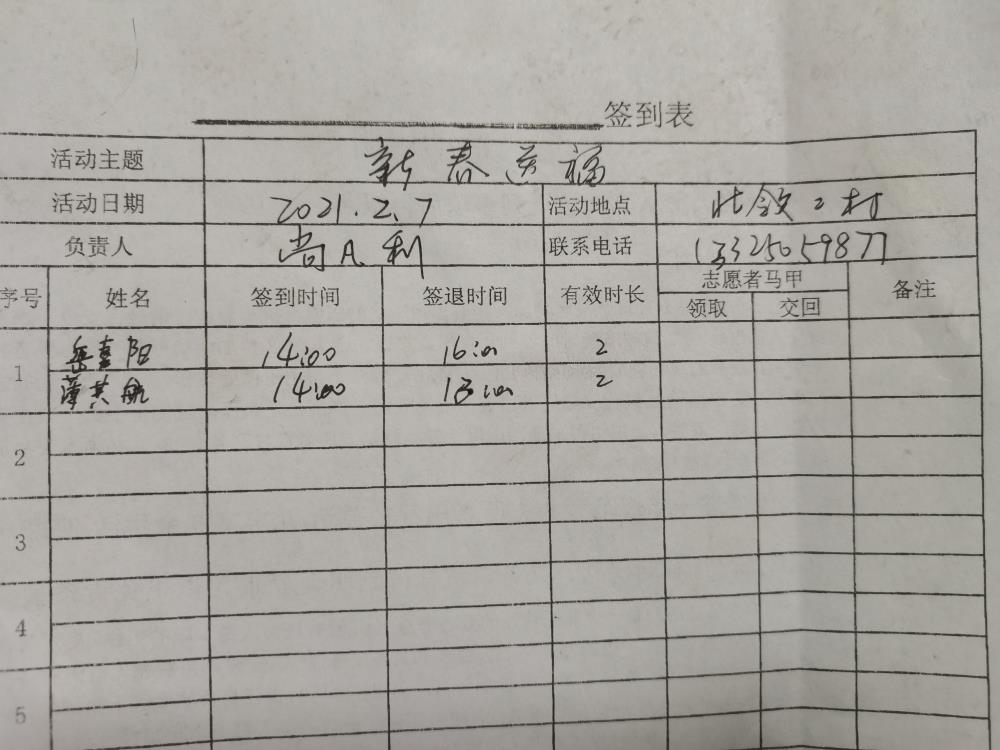 签到表
活动主题 新春送福
活动日期 2021.2.7 活动地点 北领2村
负责人 尚凡利 联系电话 13325059877
序号 姓名 签到时间 签退时间 有效时长 志愿者马甲 备注
领取 交回
1 岳喜阳 14:00 16:00 2
薄其航 14:00 :00 2
2
3
4
5